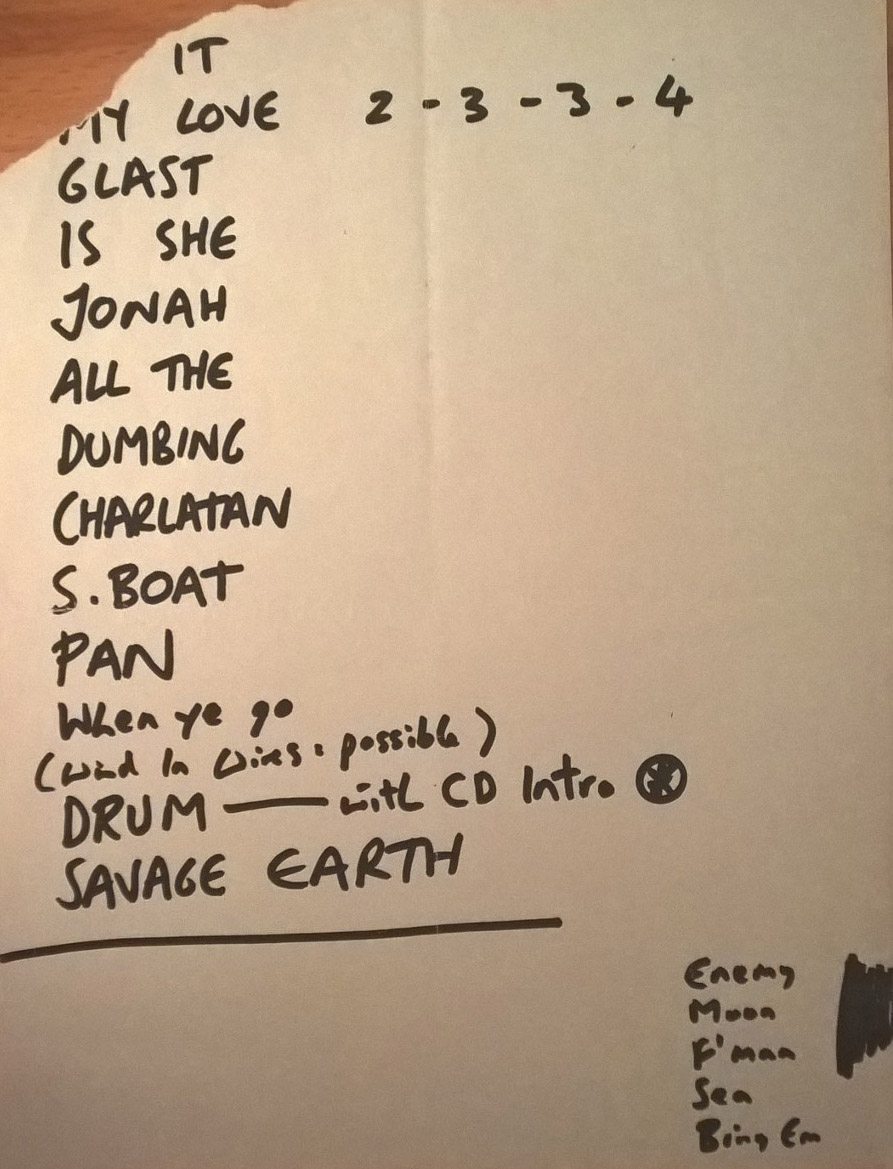 IT
MY LOVE 2 - 3 - 3 - 4
GLAST
IS SHE
JONAH
ALL THE
DUMBING
CHARLATAN
S. BOAT
PAN
When ye go
(Wind In Wires: possible)
DRUM — with CD Intro
SAVAGE EARTH
Enemy
Moon
F'man
Sea
Bing Em